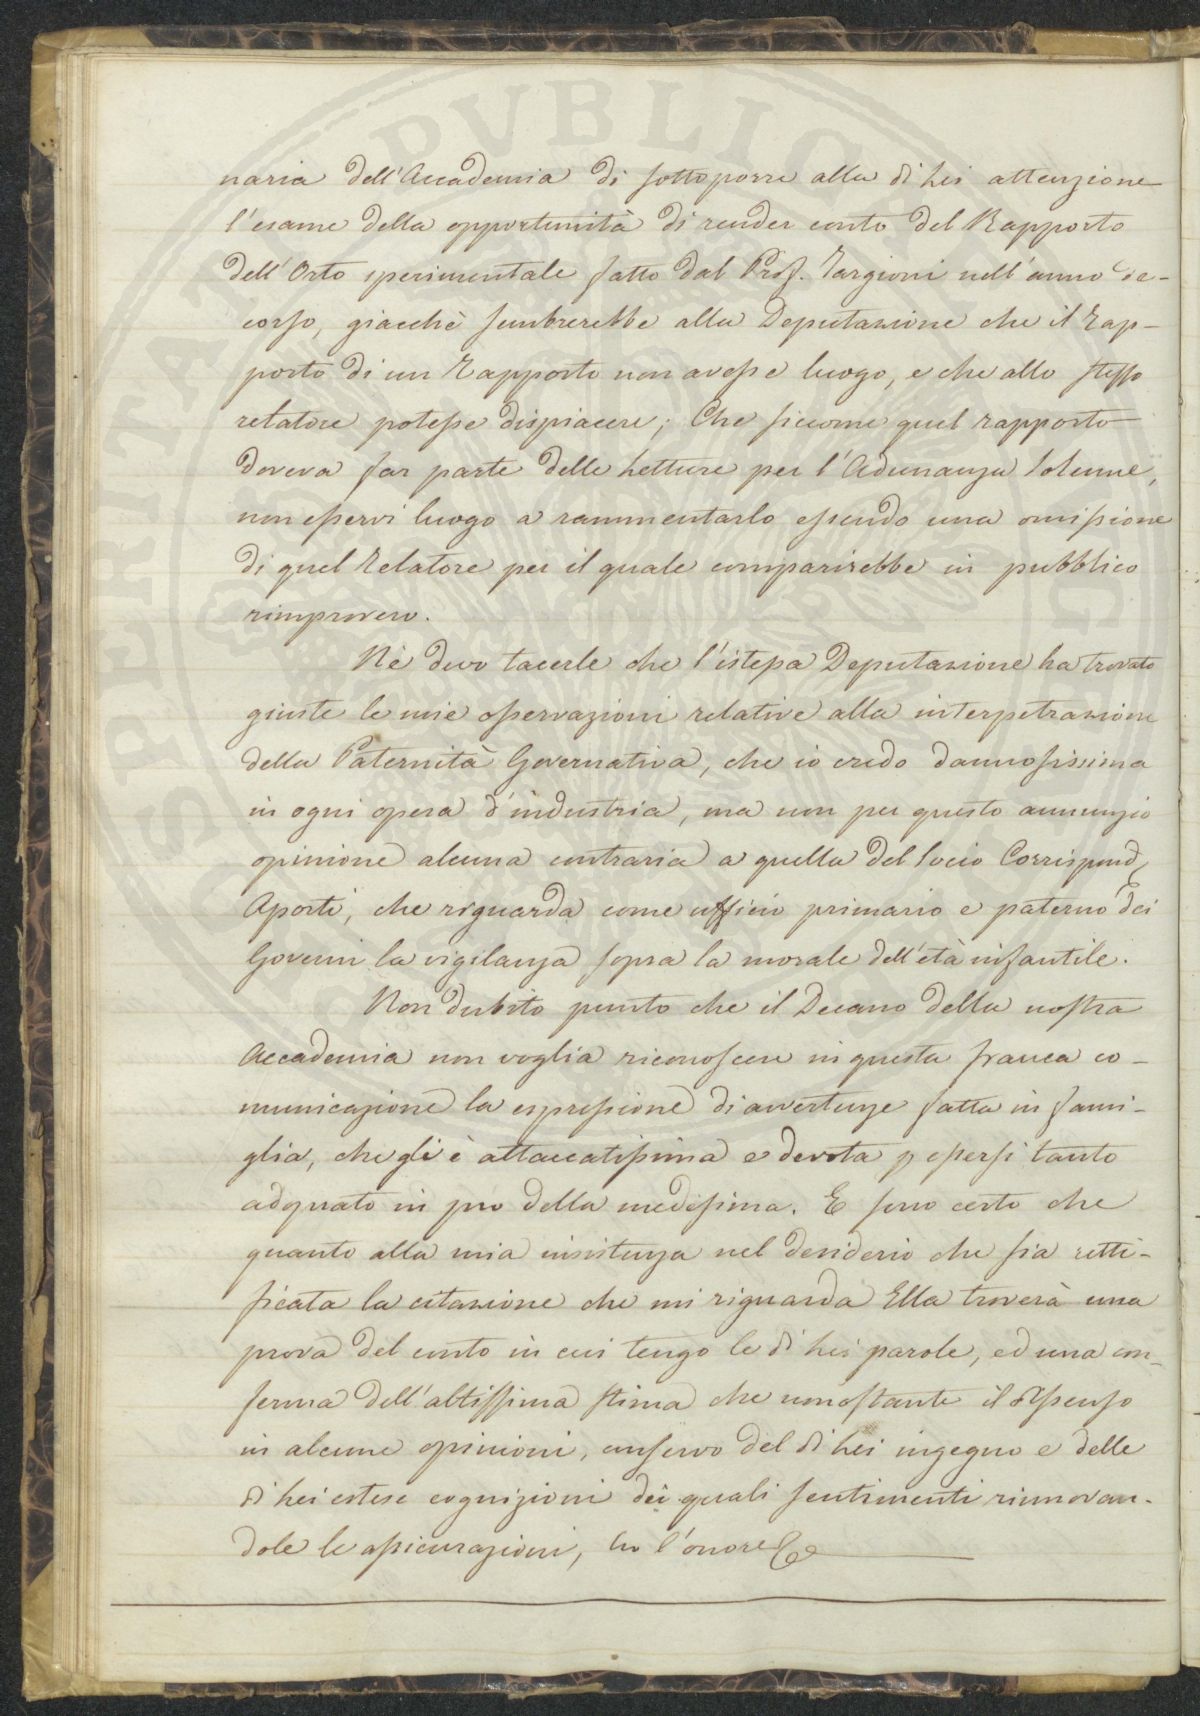 naria dell'Accademia di sottoporre alla di Lei attenzione
l'esame della opportunità di render conto del Rapporto
dell'Orto sperimentale fatto dal Prof. Targioni nell'anno de-
corso, giacchè sembrerebbe alla Deputazione che il rap-
porto di un rapporto non avesse luogo, e che allo stesso
relatore potesse dispiacere; Che siccome quel rapporto
doveva far parte delle Letture per l'Adunanza Solenne,
non esservi luogo a rammentarlo essendo una omissione
di quel Relatore per il quale comparirebbe in pubblico
rimprovero.
Nè devo tacerle che l'istessa Deputazione ha trovato
giuste le mie osservazioni relative alla interpetrazione
della Paternità Governativa, che io credo dannosissima
in ogni opera d'industria, ma non per questo annunzio
opinione alcuna contraria a quella del Socio Corrispond
Aporti, che riguarda come ufficio primario e paterno dei
Governi la vigilanza sopra la morale dell'età infantile.
Non dubito punto che il Decano della nostra
Accademia non voglia riconoscere in questa franca co-
municazione la espressione di avvertenze fatta in fami-
glia, che gli è attaccatissima e devota p essersi tanto
adoprato in pro della medesima. E sono certo che
quanto alla mia insistenza nel desiderio che sia retti-
ficata la citazione che mi riguarda Ella troverà una
prova del conto in cui tengo le di Lei parole, ed una con-
ferma dell'altissima stima che nonostante il dissenso
in alcune opinioni, conservo del di Lei ingegno e delle
di Lei estese cognizioni dei quali sentimenti rinnovan-
dole le assicurazioni, ho l'onore &c